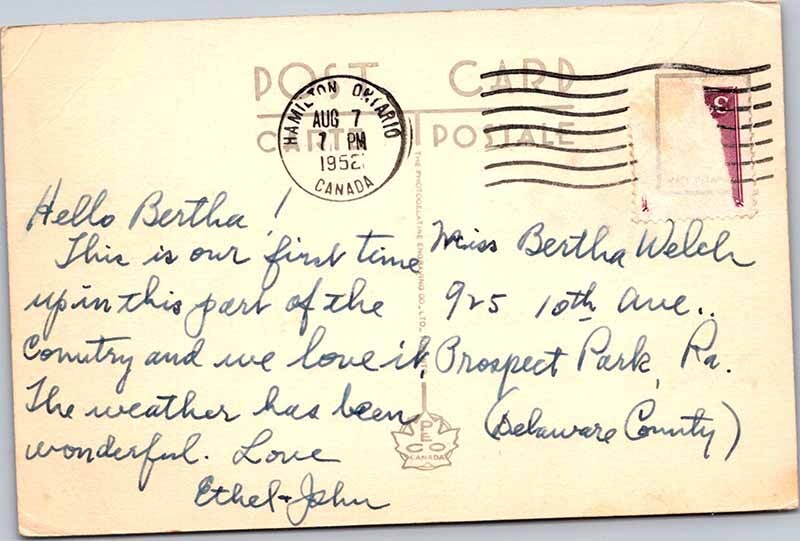 POST CARD
CARTE POSTALE
HAMILTON ONTARIO
AUG 7
7 PM
1952
CANADA
3
Hello Bertha!
This is our first time
up in this part of the
Country and we love it,
The weather has been
wonderful. Love
Ethel + John
THE PHOTOGELATINE ENGRAVING CO., LTD.,
PECO
CANADA
Miss Bertha Welch
925 10th Ave..
Prospect Park, Pa.
(Delaware County)